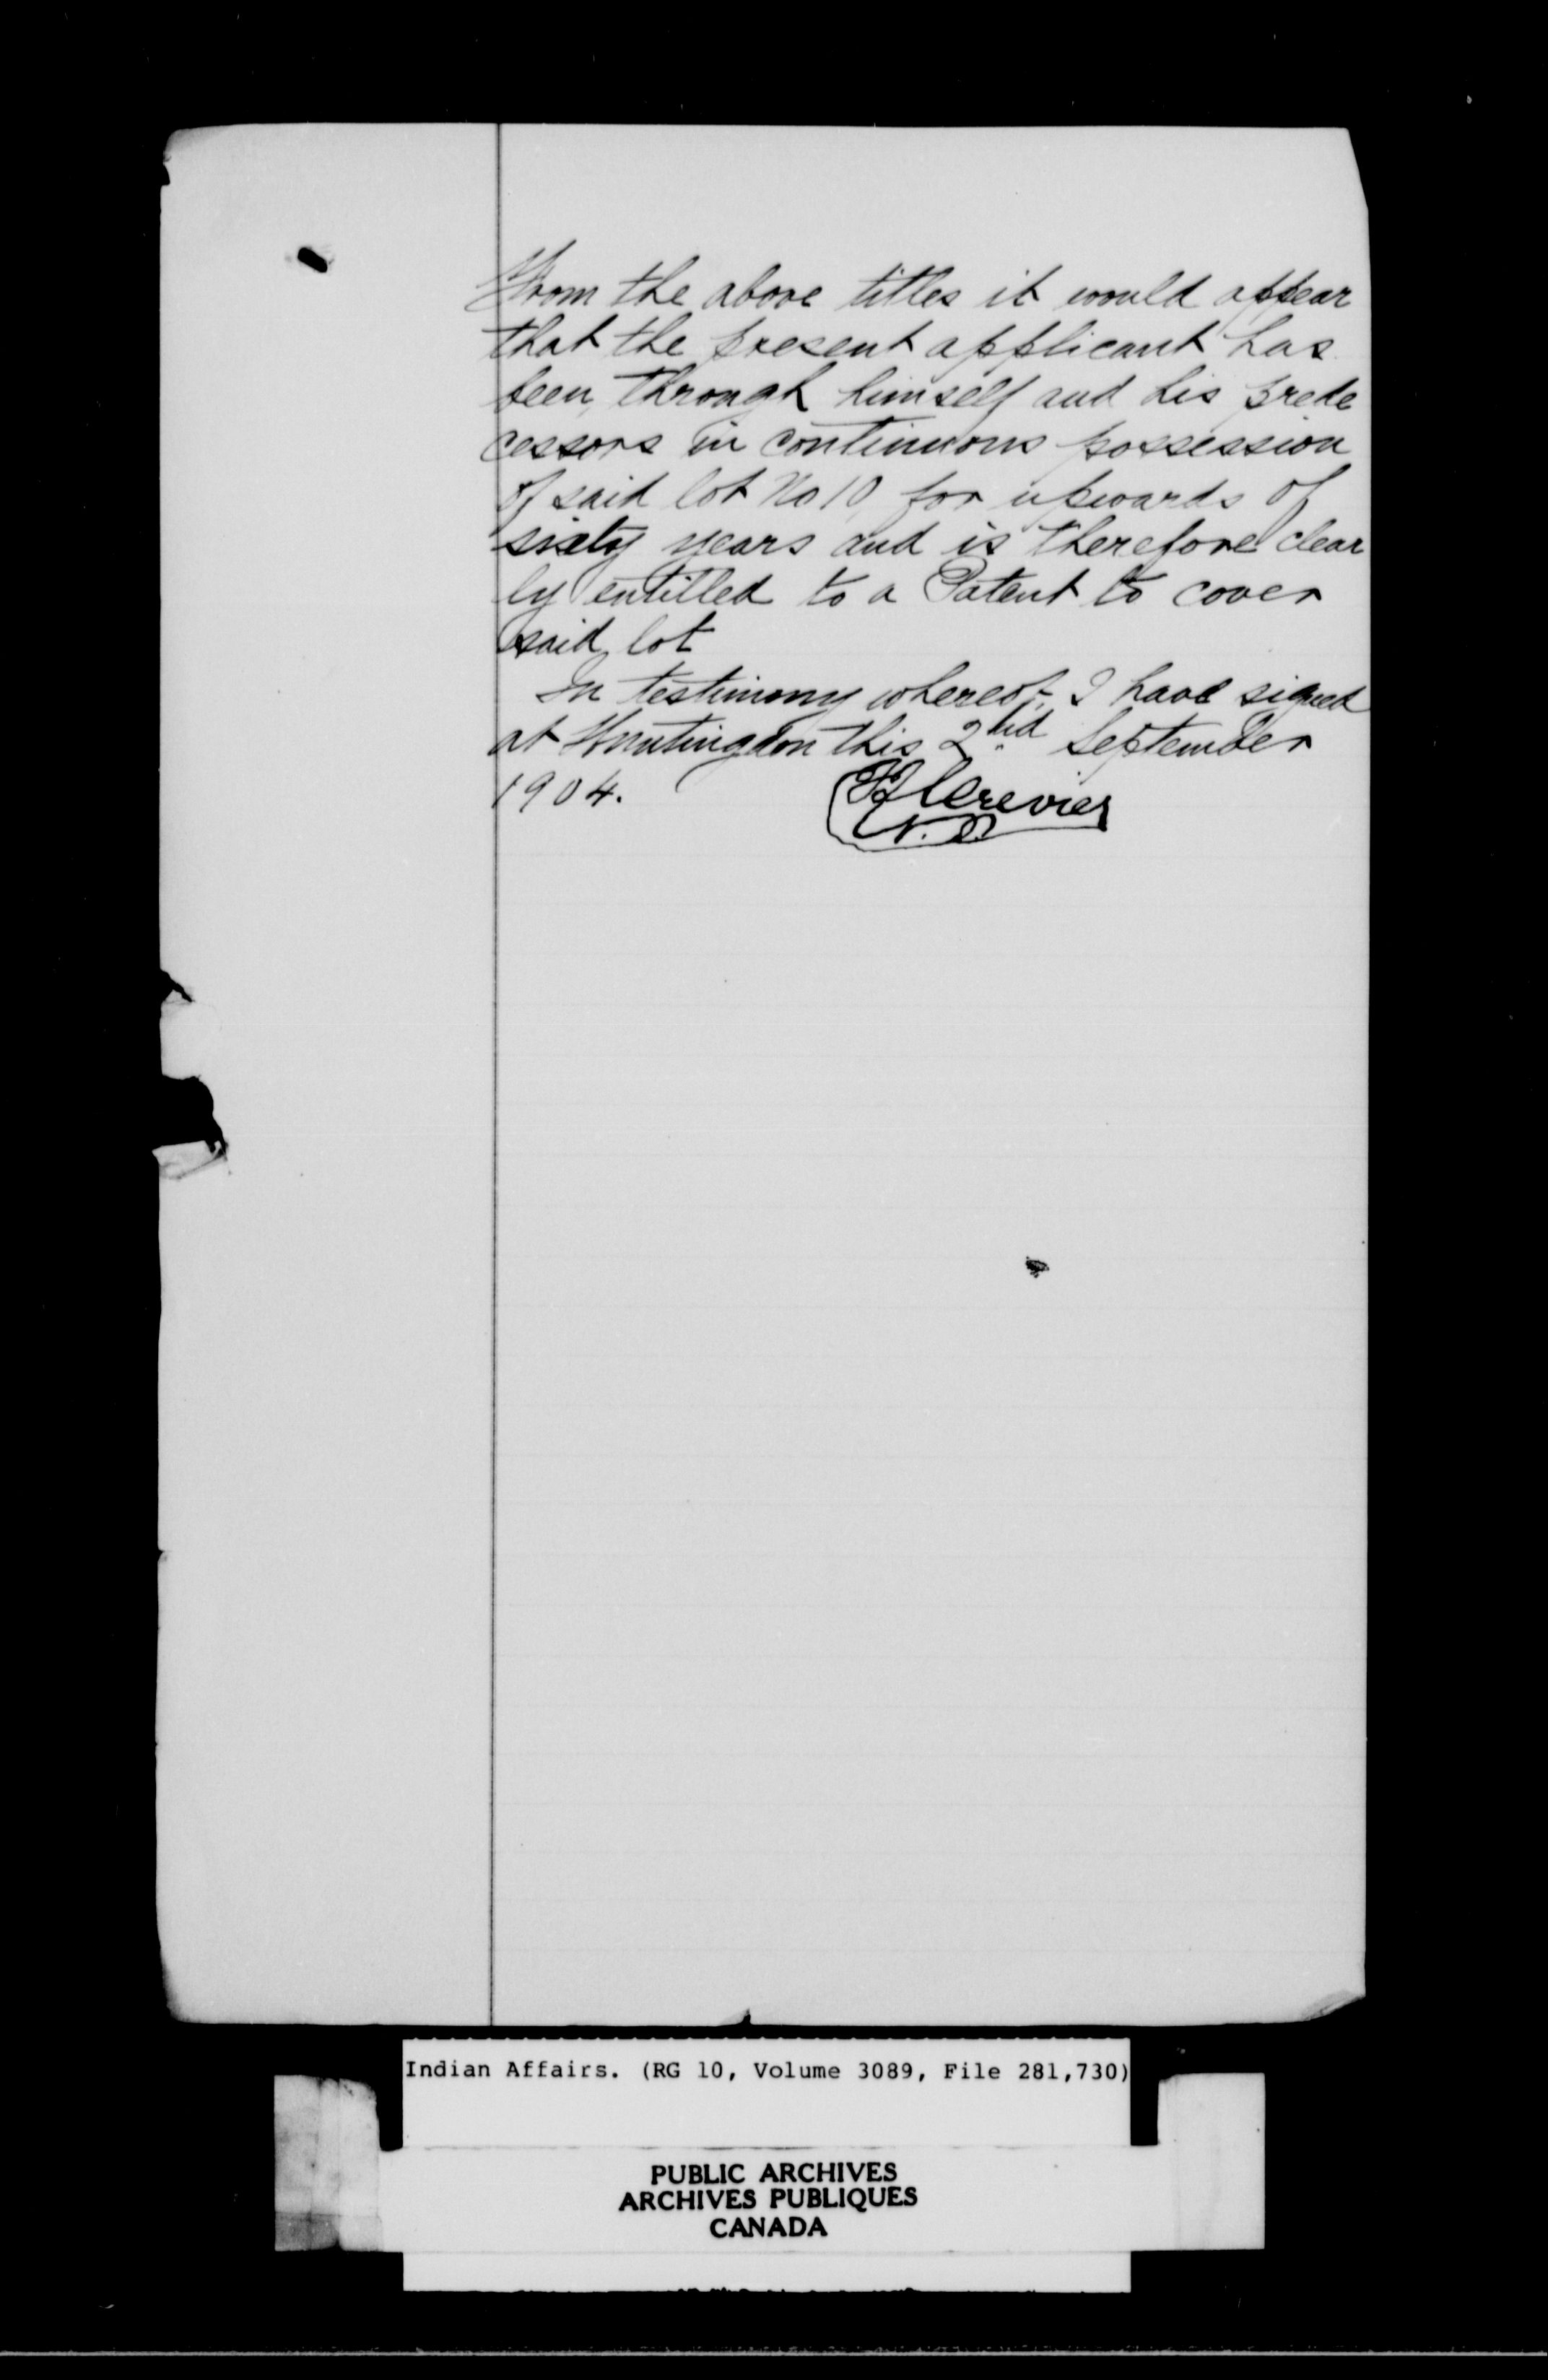 From the above titles it would appear
that the present applicant has
been, through himself and his prede
cessors in continuous possession
of said lot No 10, for upwards of
sixty years and is therefore clear
ly entitled to a Patent to cover
said lot
In testimony whereof, I have signed
at Huntingdon this 2nd September
1904.
Crevier
N.P.
Indian Affairs. (RG 10, Volume 3089, File 281,730)
PUBLIC ARCHIVES
ARCHIVES PUBLIQUES
CANADA